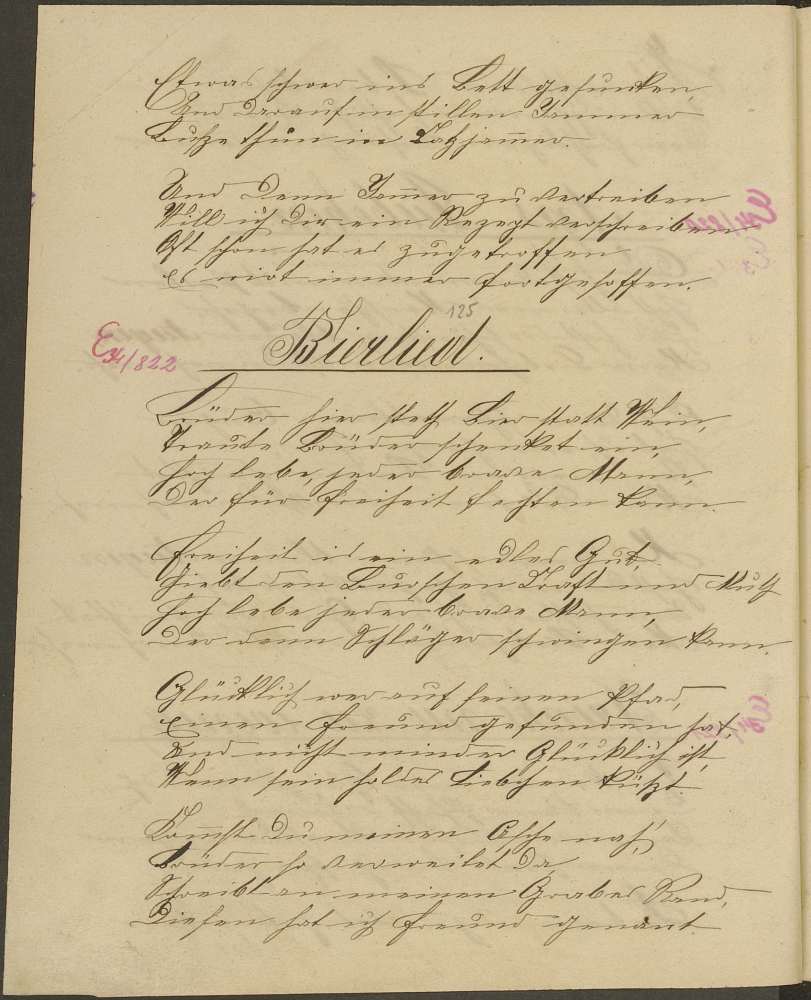 Etwas schwer ins Bett gesunken,
Und darauf im stillen Jammer
Buße thun in Katzjammer.
Und denn Jammer zu vertreiben
Will ich Dir ein Rezept verschreiben
Oft schon hat es zugetroffen
Es wirt immer fortgesoffen.
125
Bierlied.
E34/822
Brüder hier steth Bier statt Wein,
Traute Brüder schenket ein,
Hoch lebe, jeder brave Mann,
Der für Freiheit fechten kann.
Freiheit is ein edles Gut,
Giebt den Burschen Kraft und Muth
Hoch lebe jeder brave Mann,
Der denn Schläger schwingen kann.
Glücklich wer auf seinen Pfad,
Einen Freund gefunden hat.
Und nicht minder Glücklich ist,
Wenn sein holdes Liebchen küßt.
Kommst Du meinen Asche nah',
Brüder so verweilet Da,
Schreibt an meinen Grabes Rand,
Diesen hat ich Freund genant.